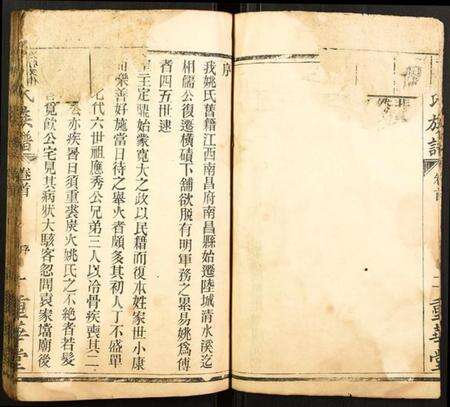 序
我姚氏舊籍江西南昌府南昌縣始遷陸城清水溪迄
相儒公復遷橫磧下舖欲脱有明軍務之累易姚爲傅
者四五世逮
主定鼎始蒙寬大之政以民籍而復本姓家世小康
樂善好施當日待之舉火者頗多其初人丁不盛單
七代六世祖應秀公兄弟三人以冷骨疾喪其二
亦疾暑日須重裘炭火姚氏之不絶者若髮
覓飲公宅見其病狀大駭客忽問袁家壋廟後
氏族譜
卷首
序
一
重華堂
氏族譜
卷首
二
重華堂